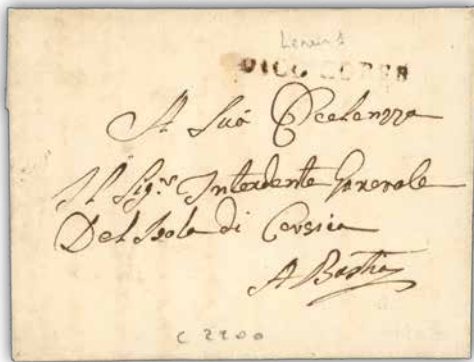 Lenain 1
VICO CORSE
A Sua Eccelenzza
Il Sig.re Intendente Generale
Del Isola di Corsica
A Bastia
C 2200